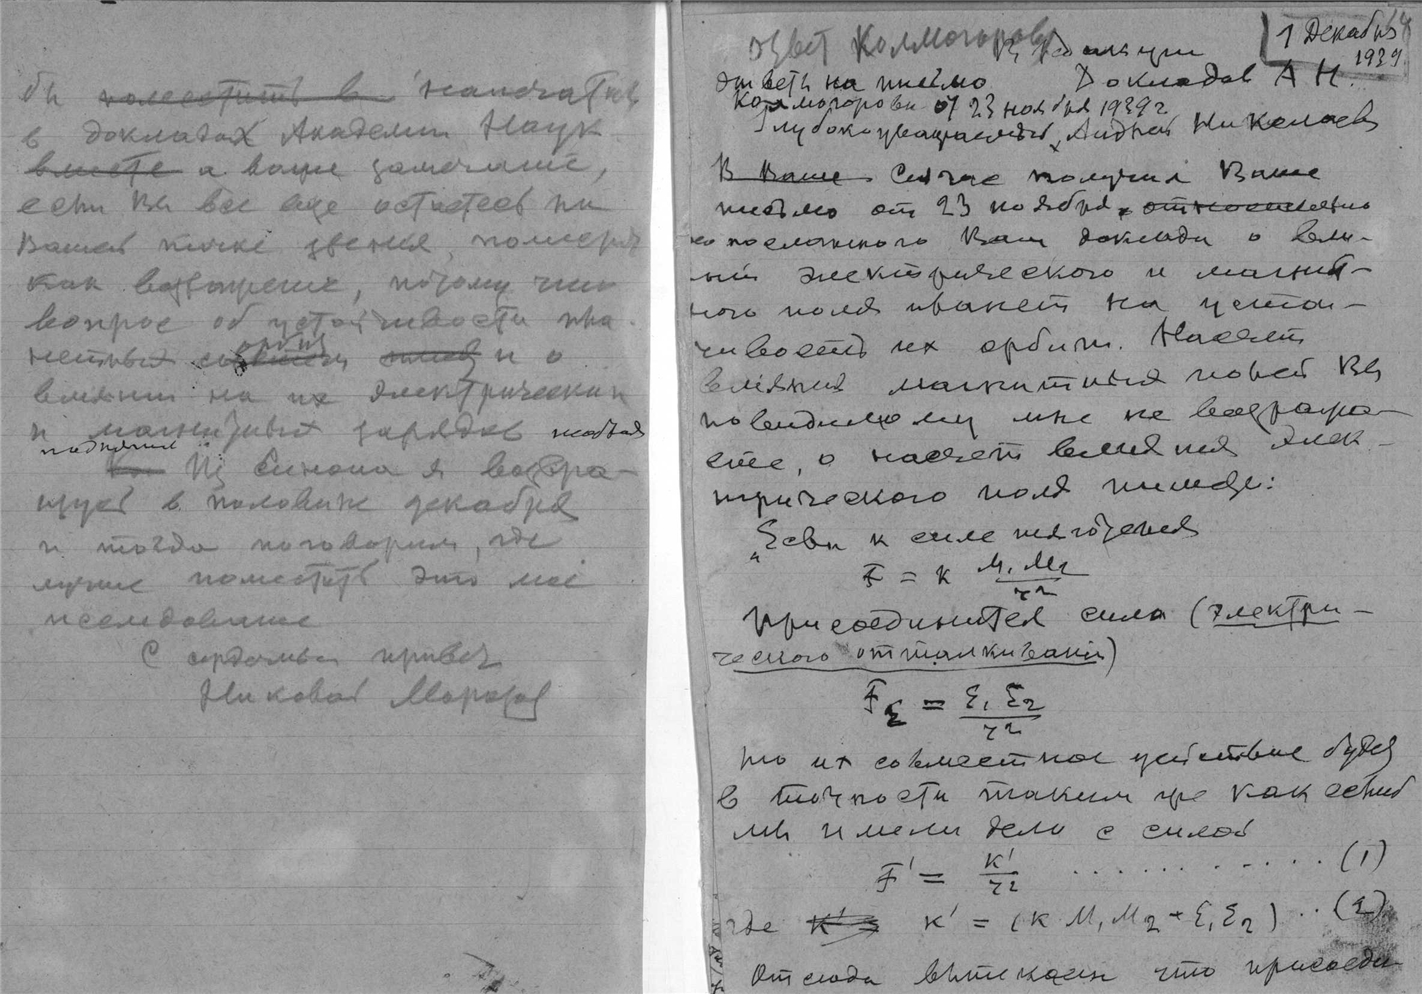 бы поместить в напечатав
в докладах Академии Наук
вместе а ваше замечание,
если Вы все еще остаетесь на
Вашей точке зрения, поместить
как возражение, потому что
вопрос об устойчивости пла-
нетных орбит и о
влиянии на их электрических
и магнитных зарядов
поднятие
Из Синопа я возвра-
щусь в половине декабря
и тогда поговорим, где
лучше поместить это мое
исследование
С сердечным привет
Николай Морозов
ответ Колмогорову
1 Декабря
1939
В Редакцию
ответ на письмо Докладов А Н.
Колмогорова от 23 ноября 1939 г
Глубокоуважаемый Андрей Николаев
В Ваше Сейчас получил Ваше
письмо от 23 ноября относительно
посланного Вам доклада о влия-
нии электрического и магнит-
ного поля планет на устой-
чивость их орбит. Насчет
влияния магнитных полей Вы
повидимому мне не возража-
ете, а насчет влияния элек-
трического поля пишете:
"Если к силе тяготения
F = k M₁ M₂ / r²
присоединится сила (электри-
ческого отталкивания)
F_ε = ε₁ ε₂ / r²
то их совместное действие будет
в точности таким же как если б
мы имели дело с силой
F' = k' / r² . . . . . . . . . . (1)
где k' = k' = (k M₁ M₂ + ε₁ ε₂) . . (2)
Отсюда вытекает что присоеди-